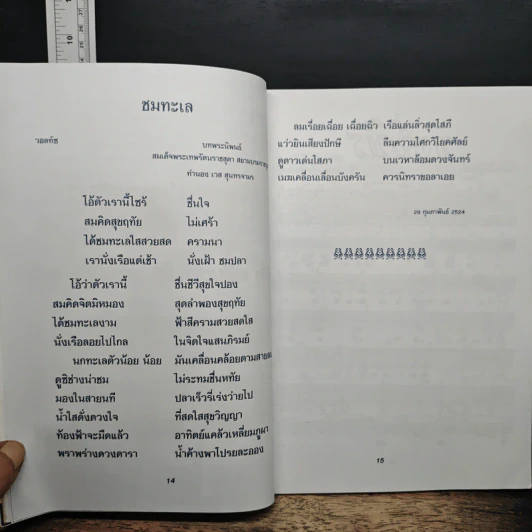 ชมทะเล
วอลท์ซ
บทพระนิพนธ์
สมเด็จพระเทพรัตนราชสุดา สยามบรมราชกุ
ทำนอง เวส สุนทรจามร
โอ้ตัวเรานี้ไซร้ ชื่นใจ
สมคิดสุขฤทัย ไม่เศร้า
ได้ชมทะเลใสสวยสด ครามนา
เรานั่งเรือแต่เช้า นั่งเฝ้า ชมปลา
โอ้ว่าตัวเรานี้ ชื่นชีวีสุขใจปอง
สมคิดจิตมิหมอง สุดลำพองสุขฤทัย
ได้ชมทะเลงาม ฟ้าสีครามสวยสดใส
นั่งเรือลอยไปไกล ในจิตใจแสนภิรมย์
นกทะเลตัวน้อย น้อย มันเคลื่อนคล้อยตามสาย
ดูซิช่างน่าชม ไม่ระทมชื่นหทัย
มองในสายนที ปลาเร็วรี่เร่งว่ายไป
น้ำใสดั่งดวงใจ ที่สดใสสุขวิญญา
ท้องฟ้าจะมืดแล้ว อาทิตย์แคล้วเหลี่ยมภูผา
พราพร่างดวงดารา น้ำค้างพาโปรยละออง
14
ลมเรื่อยเฉื่อย เฉื่อยฉิว เรือแล่นลิ่วสุดโสภี
แว่วยินเสียงปักษี ลืมความโศกวิโยคศัลย์
ดูดาวเด่นโสภา บนเวหาล้อมดวงจันทร์
เมฆเคลื่อนเลื่อนบังครัน ควรนิทราขอลาเอย
20 กุมภาพันธ์ 2524
15